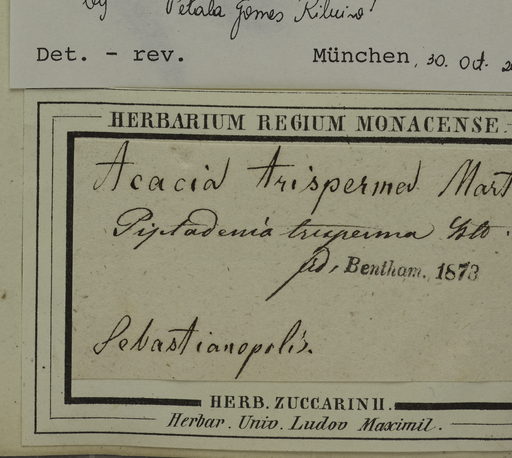 by Petala Gomes Ribeiro
Det. - rev. München, 30. Oct. 2
HERBARIUM REGIUM MONACENSE.
Acacia trisperma Mart
Piptadenia trisperma
fid. Bentham. 1873
Sebastianopolis.
HERB. ZUCCARINII.
Herbar. Univ. Ludov Maximil.